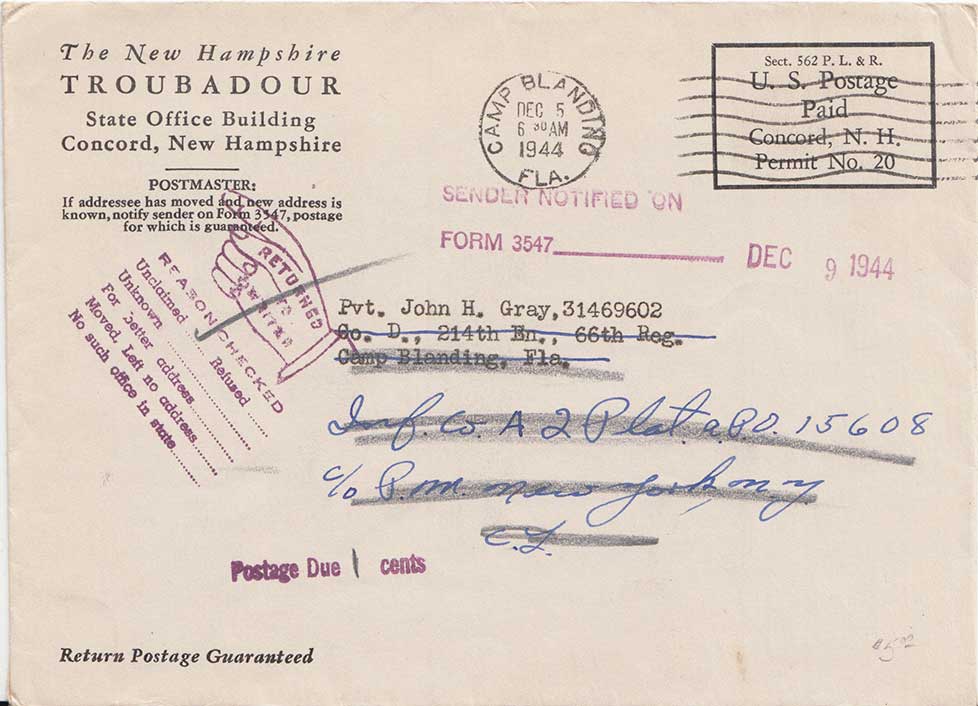 The New Hampshire
TROUBADOUR
State Office Building
Concord, New Hampshire
POSTMASTER:
If addressee has moved and new address is
known, notify sender on Form 3547, postage
for which is guaranteed.
CAMP BLANDING
DEC 5
6 30 AM
1944
FLA.
Sect. 562 P. L. & R.
U. S. Postage
Paid
Concord, N. H.
Permit No. 20
SENDER NOTIFIED ON
FORM 3547
DEC 9 1944
RETURNED
TO
WRITER
REASON CHECKED
Unclaimed ........ Refused ......
Unknown
For better address
Moved, Left no address
No such office in state
Pvt. John H. Gray,31469602
Co. D., 214th En., 66th Reg.
Camp Blanding, Fla.
Inf. Co. A 2 Plat. a.P.O. 15608
c/o P.M. New York, N.Y.
Postage Due 1 cents
Return Postage Guaranteed